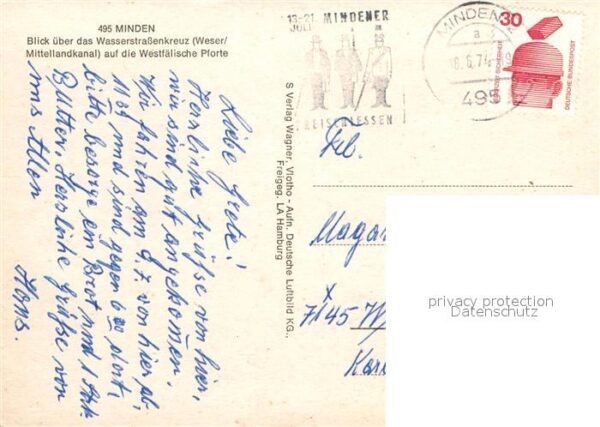 495 MINDEN
Blick über das Wasserstraßenkreuz (Weser/
Mittellandkanal) auf die Westfälische Pforte
Liebe Grete!
Herzliche Grüße von hier,
wir sind gut angekommen.
Wir fahren am 9.7. von hier ab,
und sind gegen 6 00 dort,
bitte besorge ein Brot und 1 Stck.
Butter. Herzliche Grüße von
uns Allen
Hans.
S Verlag Wagner, Vlotho - Aufn. Deutsche Luftbild KG.,
Freigeg. LA Hamburg
13.-21. MINDENER
JULI
FREISCHIESSEN
MINDEN
a
495
30
DEUTSCHE BUNDESPOST
Frl.
7145
privacy protection
Datenschutz